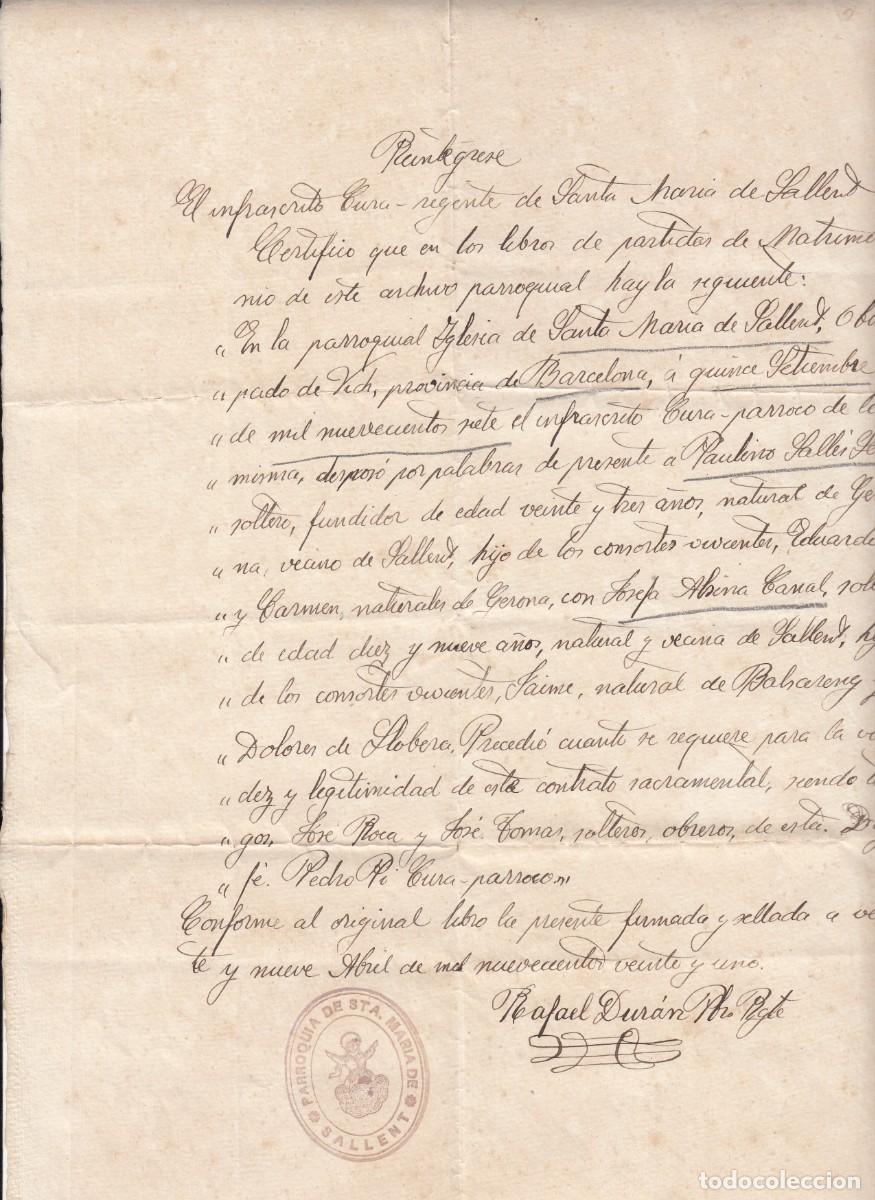 Reintégrese
El infrascrito Cura-regente de Santa Maria de Sallent
Certifico que en los libros de partidas de Matrimo
nio de este archivo parroquial hay la siguiente:
"En la parroquial Iglesia de Santa Maria de Sallent, Obis
" pado de Vich, provincia de Barcelona, á quince Setiembre
" de mil nuevecientos siete el infrascrito Cura-parroco de la
" misma, desposó por palabras de presente a Paulino Sallés
" soltero, fundidor de edad veinte y tres años, natural de Ger
" na, vecino de Sallent, hijo de los consortes vivientes, Eduardo
" y Carmen, naturales de Gerona, con Josefa Alsina Canal, solt
" de edad diez y nueve años, natural y vecina de Sallent, hij
" de los consortes vivientes, Jaime, natural de Balsareny y
" Dolores de Llobera. Precedió cuanto se requiere para la va
" dez y legitimidad de este contrato sacramental, siendo t
" gos, José Roca y José Tomas, solteros, obreros, de esta. D
" fé. Pedro Pi Cura-parroco."
Conforme al original libro la presente firmada y sellada a vein
te y nueve Abril de mil nuevecientos veinte y uno.
Rafael Durán Pbro Rgte
PARROQUIA DE STA. MARIA DE SALLENT
todocoleccion